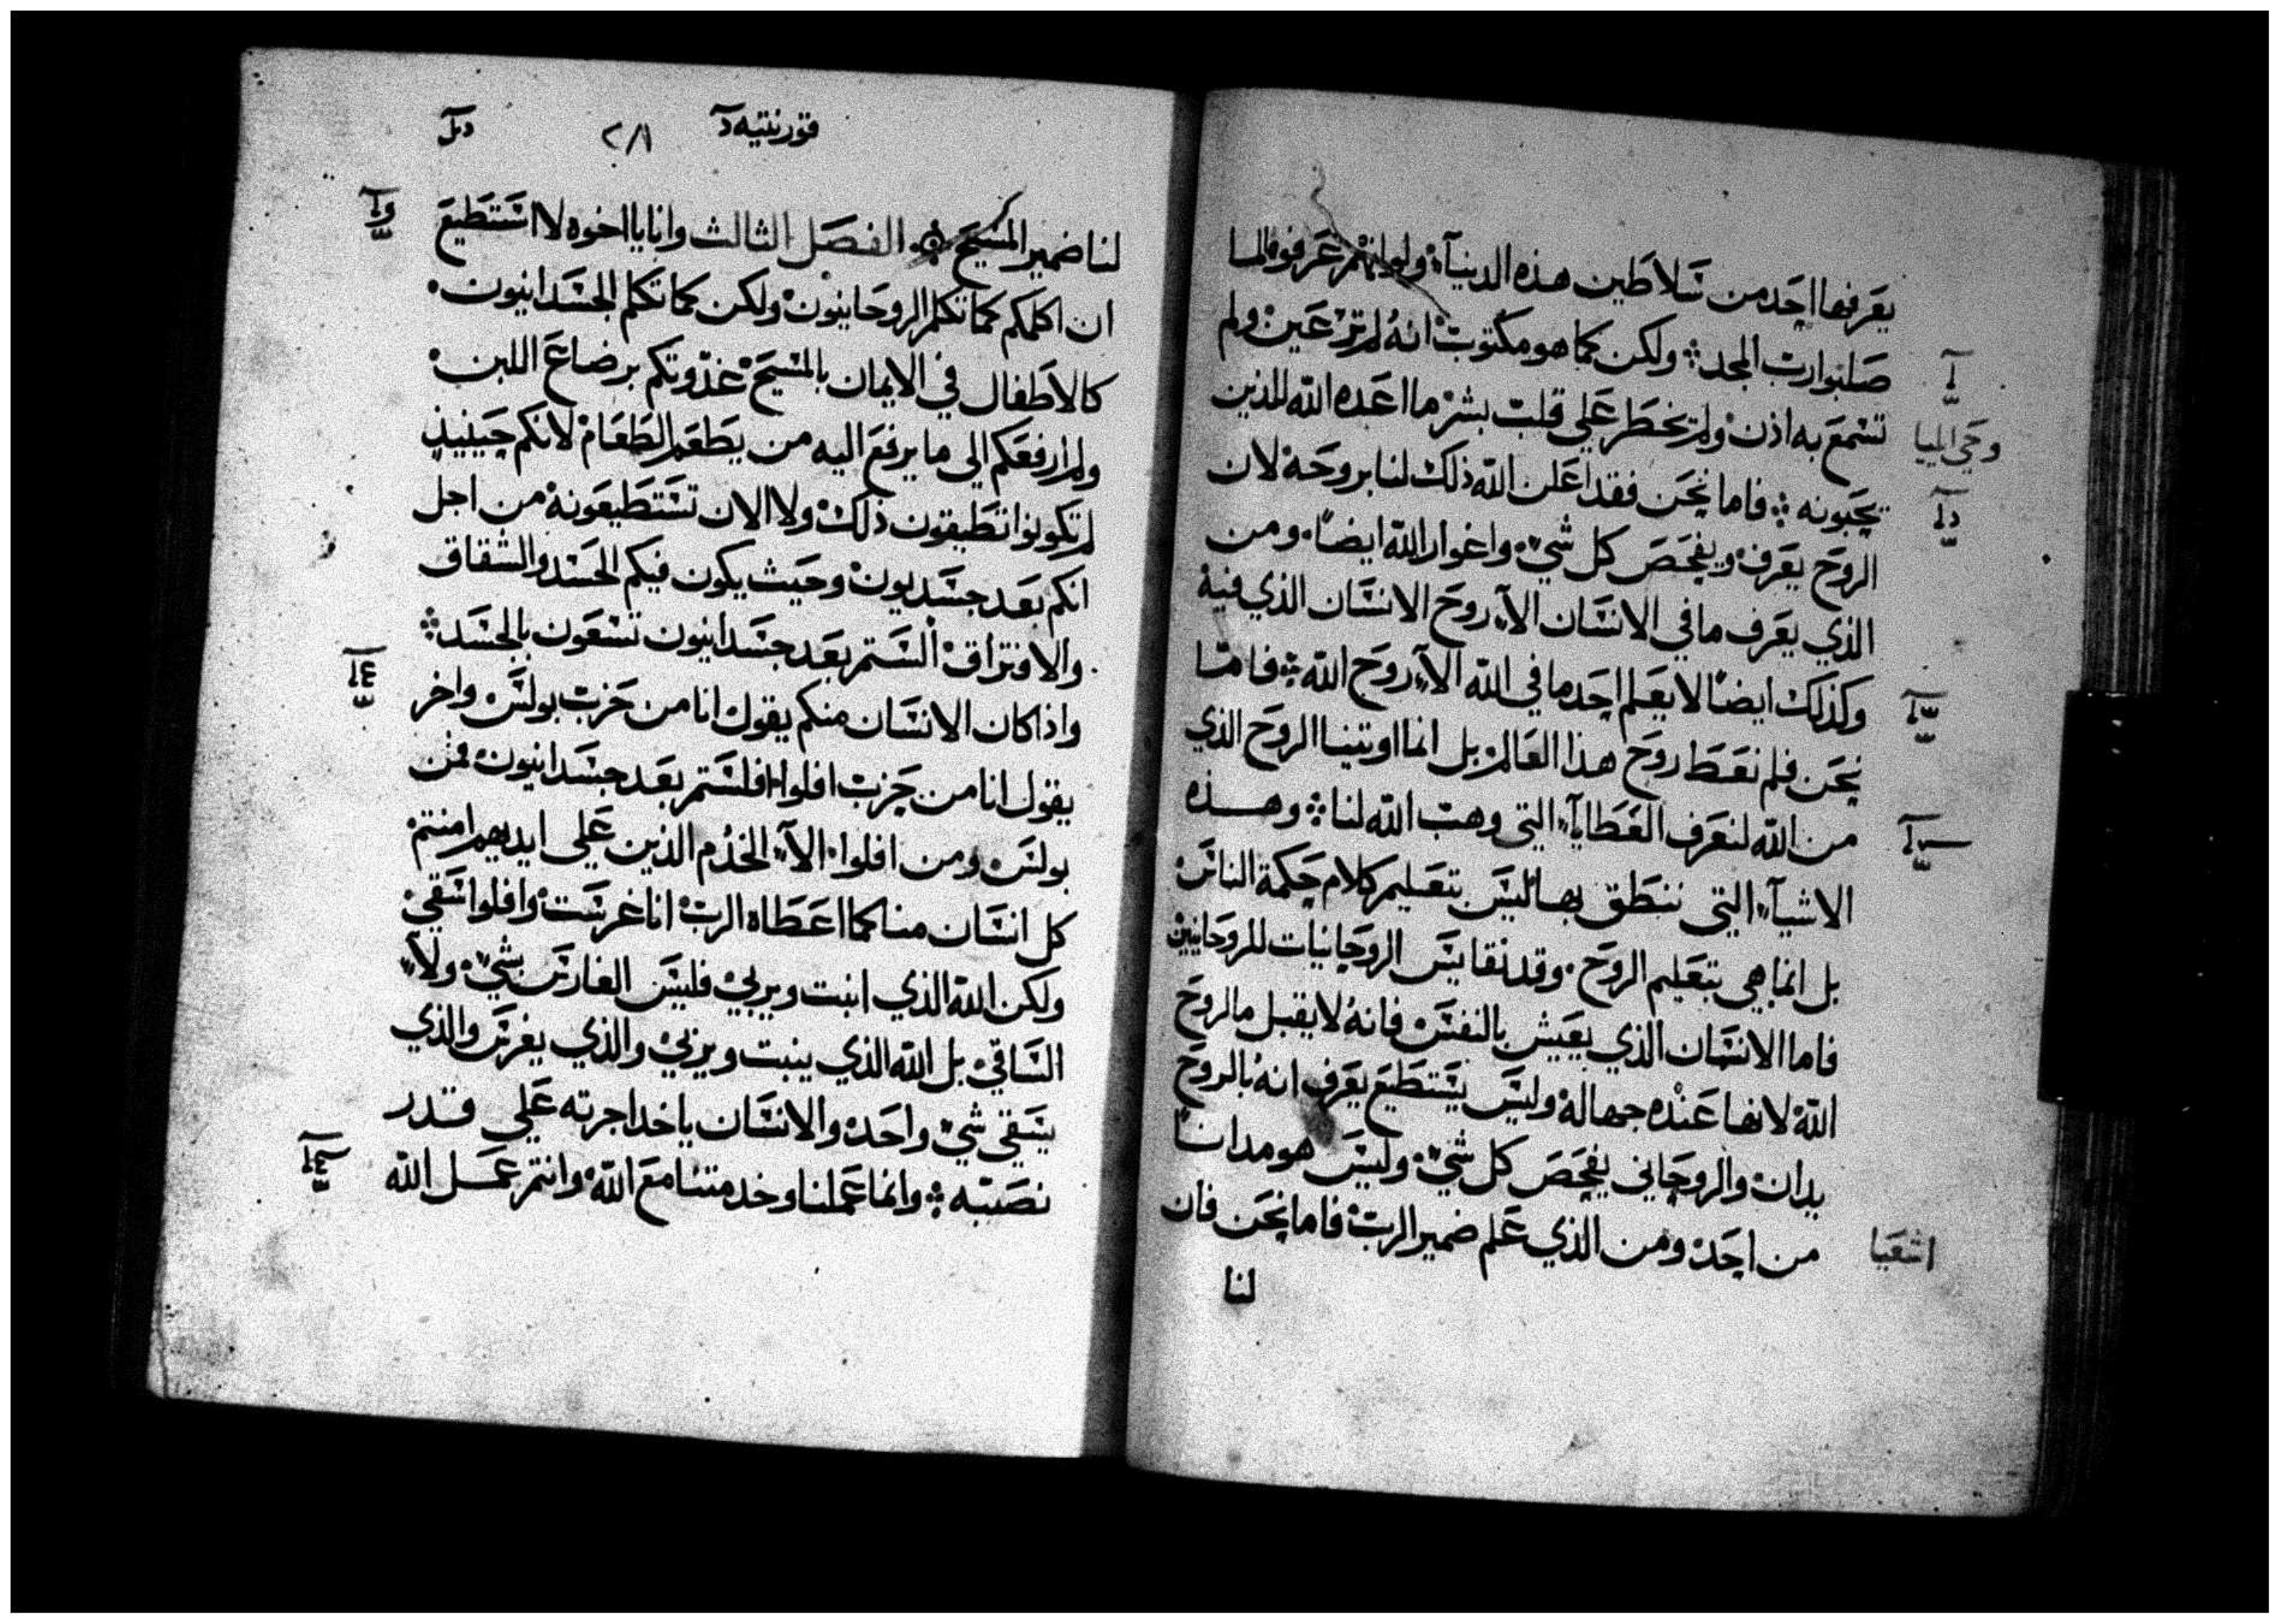 يعرفها احد من سلاطين هذه الدنيا ولو انهم عرفوه لما
صلبوا رب المجد ولكن كما هو مكتوب انه لم تر عين ولم
تسمع به اذن ولم يخطر علي قلب بشر ما اعده الله للذين
يحبونه فاما نحن فقد اعلن الله ذلك لنا بروحه لان
الروح يعرف ويفحص كل شي واغوار الله ايضا ومن
الذي يعرف ما في الانسان الا روح الانسان الذي فيه
وكذلك ايضا لا يعلم احد ما في الله الا روح الله فاما
نحن فلم نعط روح هذا العالم بل انما اوتينا الروح الذي
من الله لنعرف العطايا التي وهب الله لنا وهذه
الاشيآ التي ننطق بها ليس بتعليم كلام حكمة الناس
بل انما هي بتعليم الروح وقد نقايس الروحانيات للروحانيين
فاما الانسان الذي يعيش بالنفس فانه لا يقبل ما لروح
الله لانها عنده جهالة وليس يستطيع يعرف انه بالروح
يدان والروحاني يفحص كل شي وليس هو مدانا
من احد ومن الذي علم ضمير الرب فاما نحن فان
لنا
وحي ايليا
اشعيا
قورنتيه
٢٨١
لنا ضمير المسيح الفصل الثالث وانا يا اخوه لا استطيع
ان اكلمكم كما تكلم الروحانيون ولكن كما تكلم الجسدانيون
كالاطفال في الايمان بالمسيح غذوتكم برضاع اللبن
ولم ارفعكم الي ما يرفع اليه من يطعم الطعام لانكم حينيذ
لم تكونوا تطيقون ذلك ولا الان تستطيعونه من اجل
انكم بعد جسديون وحيث يكون فيكم الحسد والشقاق
والافتراق الستم بعد جسدانيون تسعون بالجسد
واذا كان الانسان منكم يقول انا من حزب بولس واخر
يقول انا من حزب افلوا افلستم بعد جسدانيون فمن
بولس ومن افلوا الا الخدم الذين علي ايديهم امنتم
كل انسان منا كما اعطاه الرب انا غرست وافلوا سقي
ولكن الله الذي انبت ويربي فليس الغارس بشي ولا
الساقي بل الله الذي ينبت ويربي والذي يغرس والذي
يسقي شي واحد والانسان ياخد اجرته علي قدر
نصبه وانما عملنا وخدمتنا مع الله وانتم عمل الله